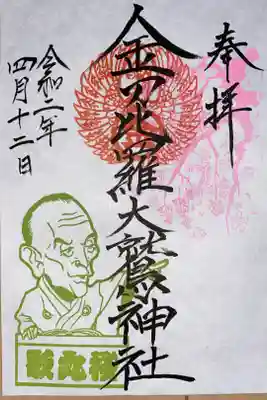 奉拝
金刀比羅大鷲神社
令和二年
四月十二日